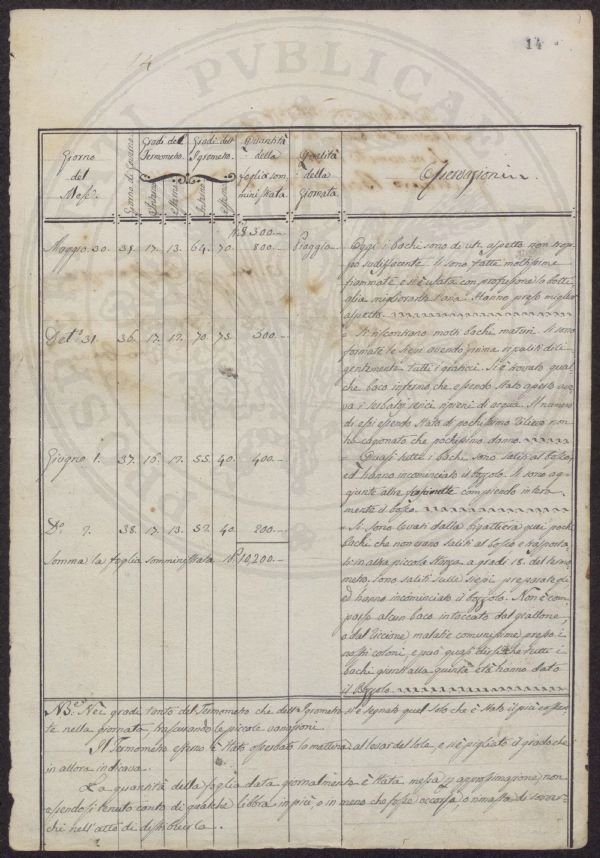 14
14
Giorno del Mese
Giorno di Governo
Gradi del Termometro
Interno
Esterno
Gradi dell' Igrometro
Interno
Esterno
Quantità della foglia somministrata
Qualità della Giornata
Osservazioni
℔ 8300.
Maggio. 30. 35. 17. 13. 64. 70. 800. Pioggia.
Oggi i bachi sono di un aspetto non troppo
po sudisfacente. Si sono fatte moltissime
fiammate e si è usata con profusione la botti-
glia migliorante l'aria. Hanno preso miglior
aspetto.
Detto. 31. 36. 17. 12. 70. 75. 500.
Si riscontrano molti bachi maturi. Si sono
formate le siepi avendo prima ripuliti dili-
gentemente tutti i graticci. Si è trovato qual
che baco infermo che essendo stato aperto ave-
va i serbatoi serici ripieni di acqua. Il numero
di essi essendo stato di pochissimo rilievo non
ha cagionato che pochissimo danno.
Giugno 1. 37. 16. 12. 55. 40. 400.
Quasi tutti i bachi sono saliti al bosco,
ed hanno incominciato il bozzolo. Si sono ag-
giunte altre fascinette compiendo intera-
mente il bosco.
Do. 2. 38. 17. 13. 52. 40. 200.
Si sono levati dalla bigattiera quei pochi
bachi che non erano saliti al bosco e trasporta-
ti in altra piccola stanza a gradi 18. del termo-
metro. Sono saliti sulle siepi preparategli
ed hanno incominciato il bozzolo. Non è com-
parso alcun baco intaccato dal grattone,
o dal riccione malatie comunissime presso i
nostri coloni, e può quasi dirsi che tutti i
bachi giunti alla quinta età hanno dato
il Bozzolo.
Somma la foglia somministrata ℔ 10,200.
NB. Nei gradi tanto del Termometro che dell'Igrometro si è segnato quel solo che è stato il più costan-
te nella giornata, trascurando le piccole variazioni.
Il Termometro esterno è stato osservato la mattina al levar del Sole, e si è pigliato il grado che
in allora indicava.
La quantità della foglia data giornalmente è stata messa p approssimazione non
essendosi tenuto conto di qualche libbra in più, o in meno che fosse occorsa, o rimasta di sover-
chio nell'atto di distribuirla.